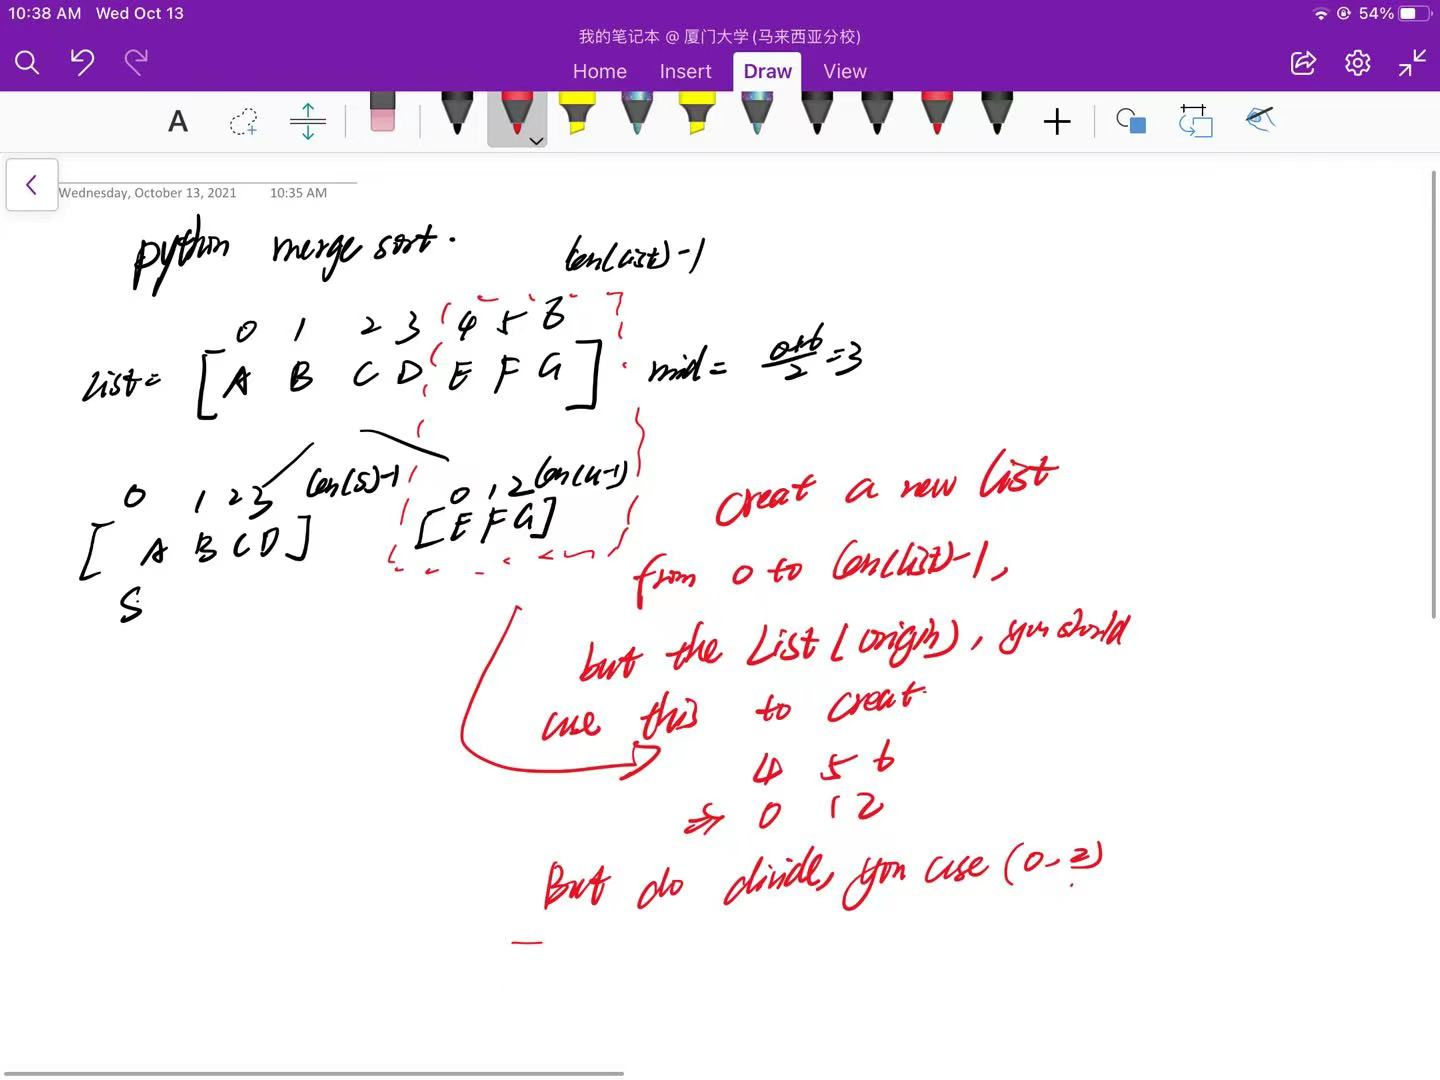 10:38 AM Wed Oct 13
54%
我的笔记本 @ 厦门大学(马来西亚分校)
Home Insert Draw View
A
Wednesday, October 13, 2021 10:35 AM
python merge sort.
len(list)-1
0 1 2 3 4 5 6
list = [A B C D E F G] mid = 0+6/2 = 3
0 1 2 3 len(S)-1 0 1 2
[A B C D] [E F G]
S
creat a new list
from 0 to len(list)-1,
but the list (origin), you should
use this to creat.
4 5 6
⇒ 0 1 2
But do divide, you use (0-2)